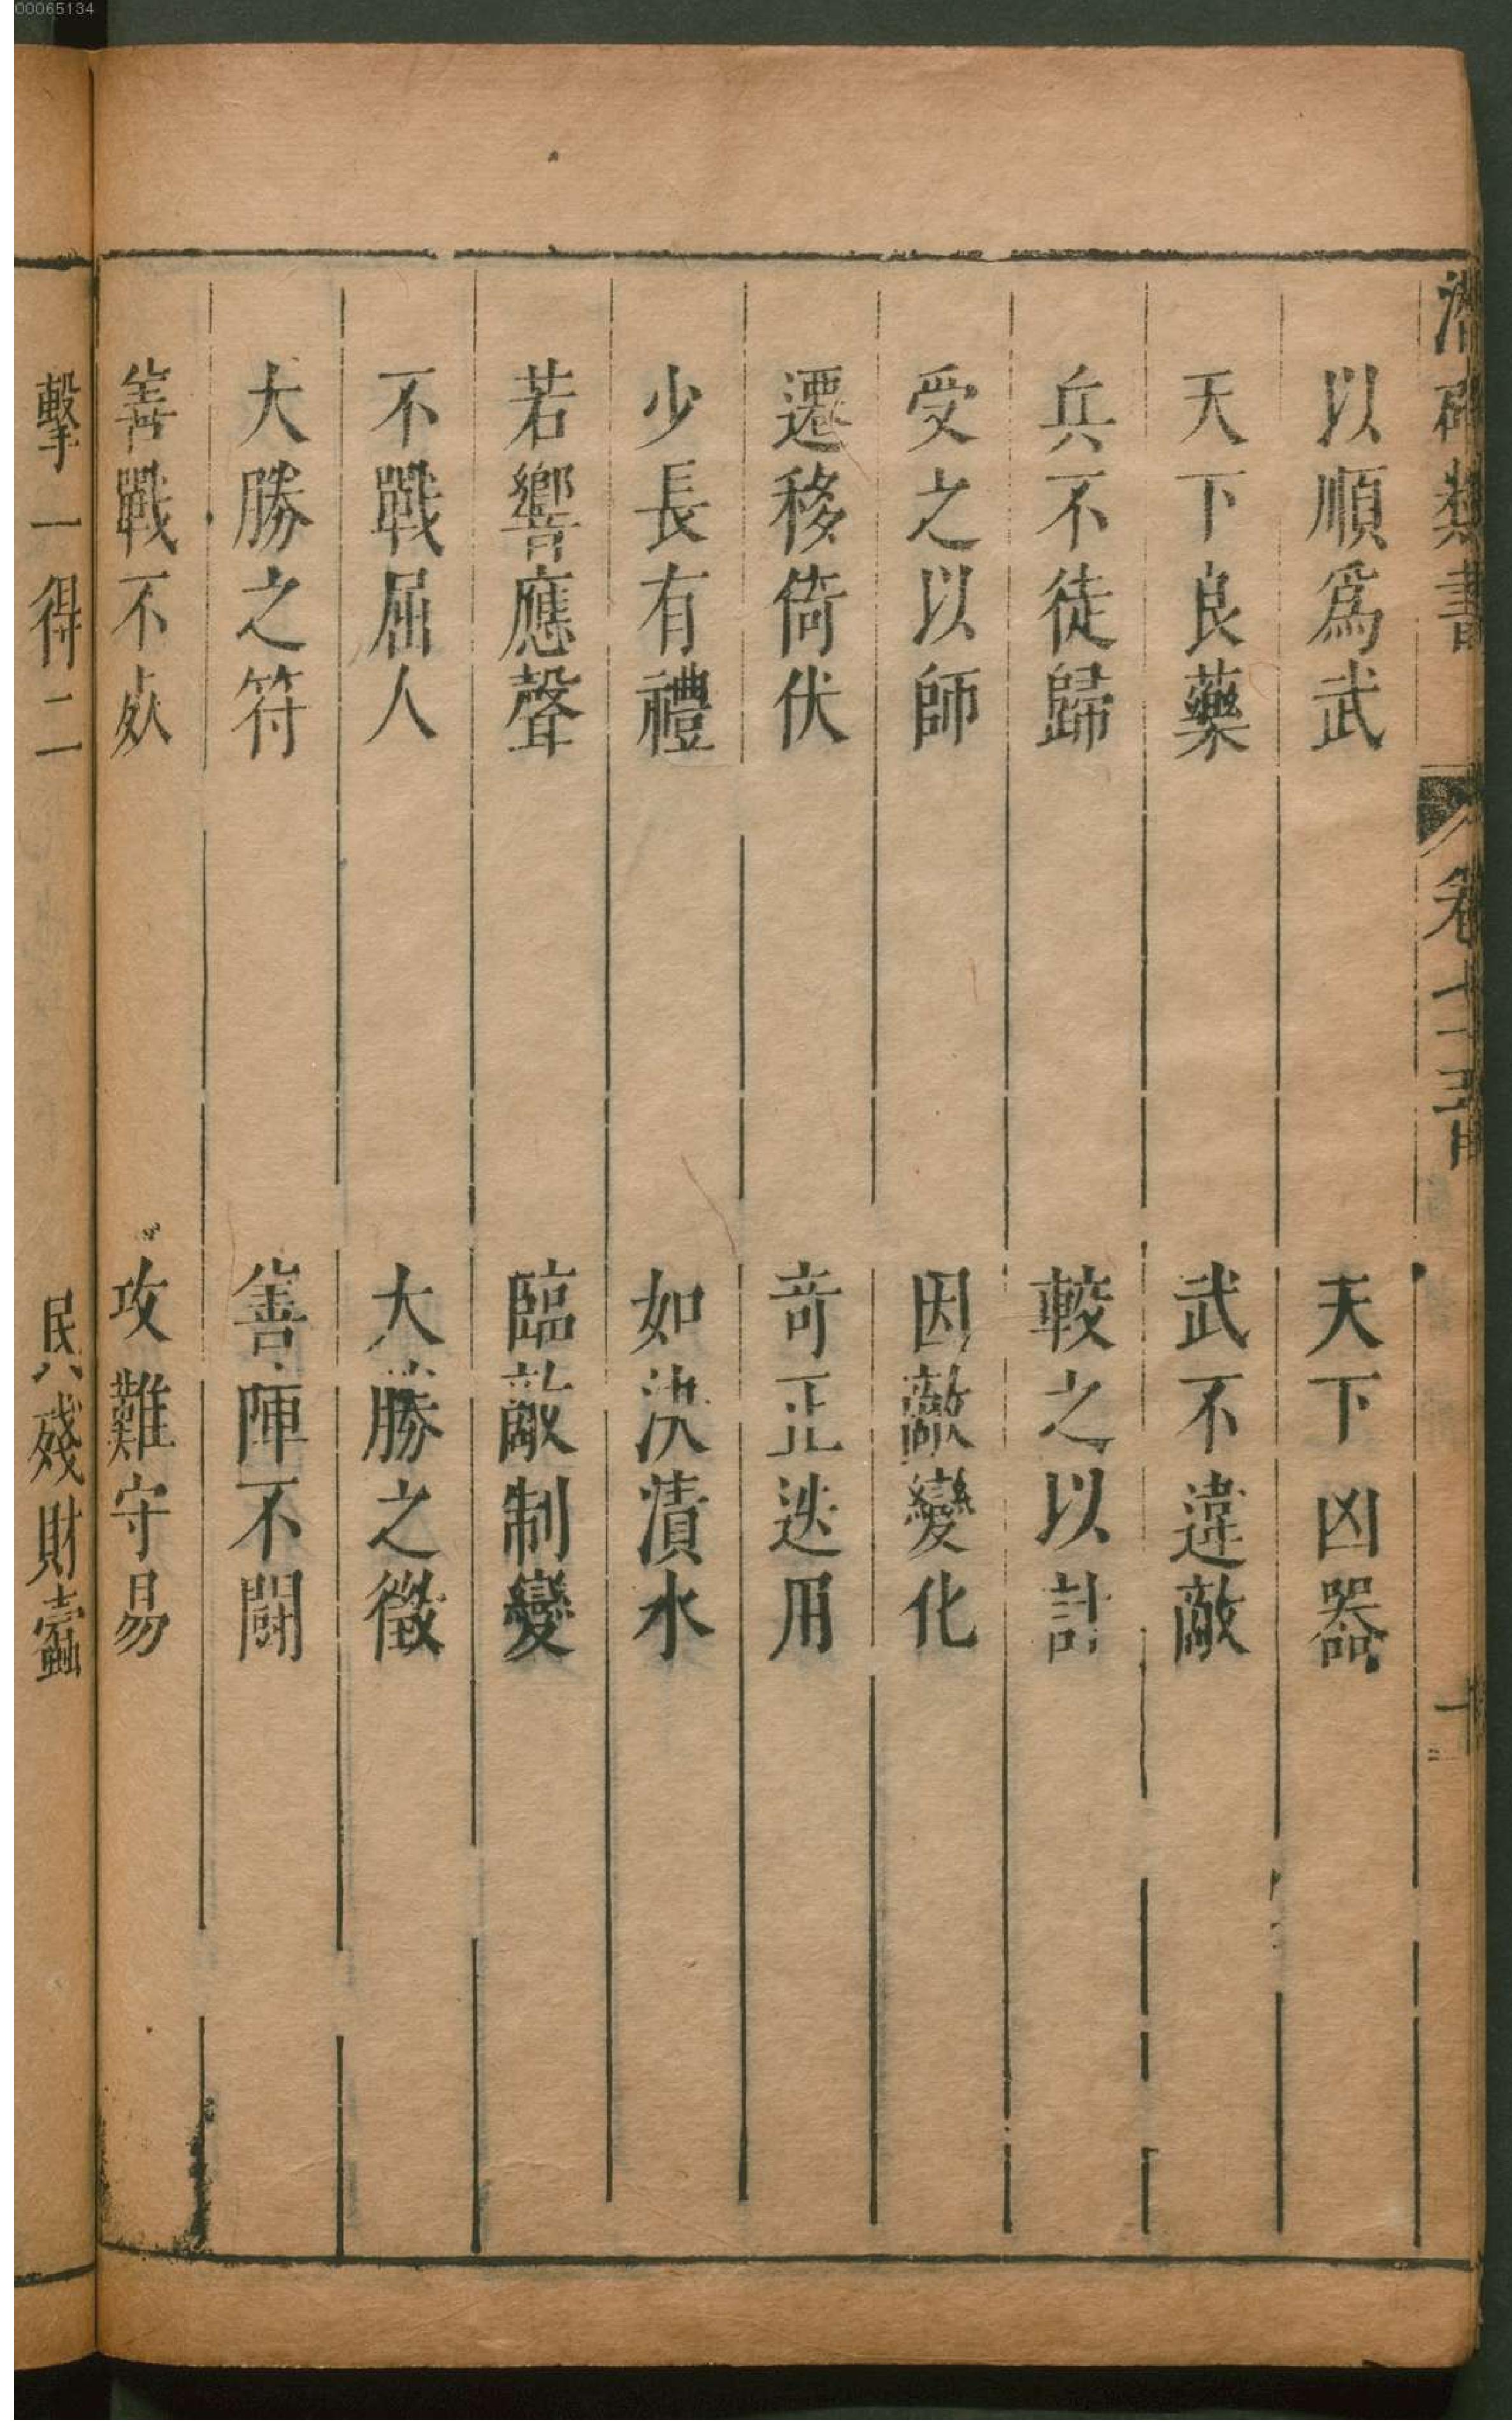 00065134
潛確類書 卷七十五
以順爲武 天下凶器
天下良藥 武不違敵
兵不徒歸 較之以計
受之以師 因敵變化
遷移倚伏 竒正迭用
少長有禮 如決漬水
若響應聲 臨敵制變
不戰屈人 大勝之徵
大勝之符 善陣不鬬
善戰不 攻難守易
擊一得二 民殘財蠹